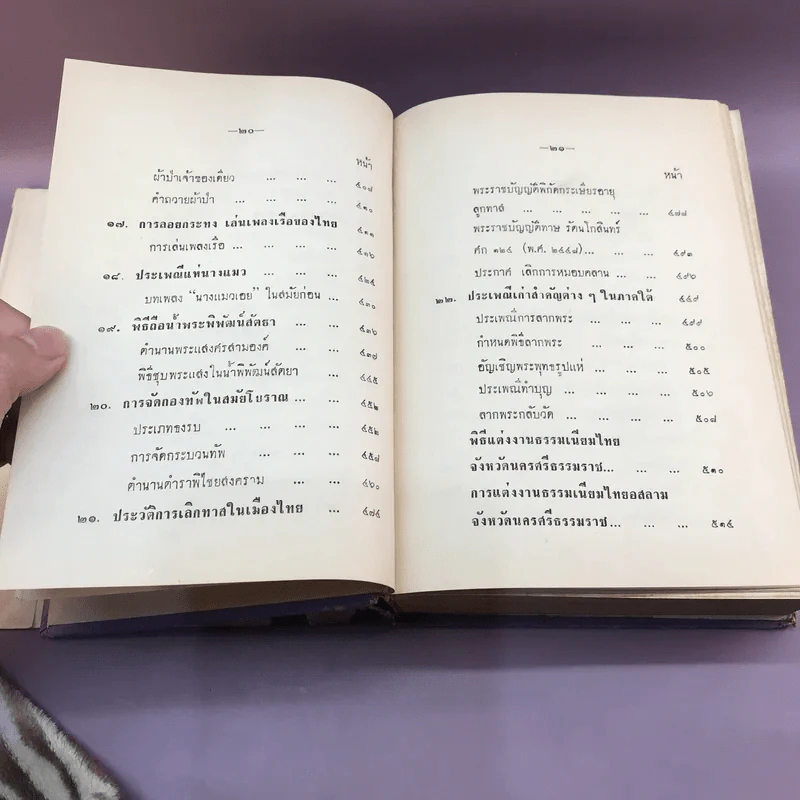 —๒๐—
หน้า
ผ้าป่าเจ้าของเดียว ... ... ... ๔๐๘
คำถวายผ้าป่า ... ... ... ๔๑๐
๑๗. การลอยกระทง เล่นเพลงเรือของไทย ๔๑๑
การเล่นเพลงเรือ ... ... ... ๔๑๖
๑๘. ประเพณีแห่นางแมว ... ... ๔๒๕
บทเพลง "นางแมวเอย" ในสมัยก่อน ... ๔๓๐
๑๙. พิธีถือน้ำพระพิพัฒน์สัตยา ... ๔๓๖
ตำนานพระแสงศรสามองค์ ... ๔๓๗
พิธีชุบพระแสงในน้ำพิพัฒน์สัตยา ... ๔๔๕
๒๐. การจัดกองทัพในสมัยโบราณ ... ๔๕๒
ประเภทของรบ ... ... ... ๔๕๒
การจัดกระบวนทัพ ... ... ๔๕๘
ตำนานตำราพิไชยสงคราม ... ... ๔๖๐
๒๑. ประวัติการเลิกทาสในเมืองไทย ... ๔๗๔
—๒๑—
หน้า
พระราชบัญญัติพิกัดกระเษียรอายุ
ลูกทาส ... ... ... ... ... ๔๗๘
พระราชบัญญัติทาษ รัตนโกสินทร์
ศก ๑๒๔ (พ.ศ. ๒๔๔๘) ... ... ๔๙๓
ประกาศ เลิกการหมอบคลาน ... ... ๔๙๖
๒๒. ประเพณีเก่าสำคัญต่าง ๆ ในภาคใต้ ๔๔๙
ประเพณีการลากพระ ... ... ... ๔๙๙
กำหนดพิธีลากพระ ... ... ... ๕๐๐
อัญเชิญพระพุทธรูปแห่ ... ... ... ๕๐๕
ประเพณีทำบุญ ... ... ... ๕๐๖
ลากพระกลับวัด ... ... ... ๕๐๘
พิธีแต่งงานธรรมเนียมไทย
จังหวัดนครศรีธรรมราช... ... ... ๕๑๐
การแต่งงานธรรมเนียมไทยอสลาม
จังหวัดนครศรีธรรมราช... ... ... ๕๑๔